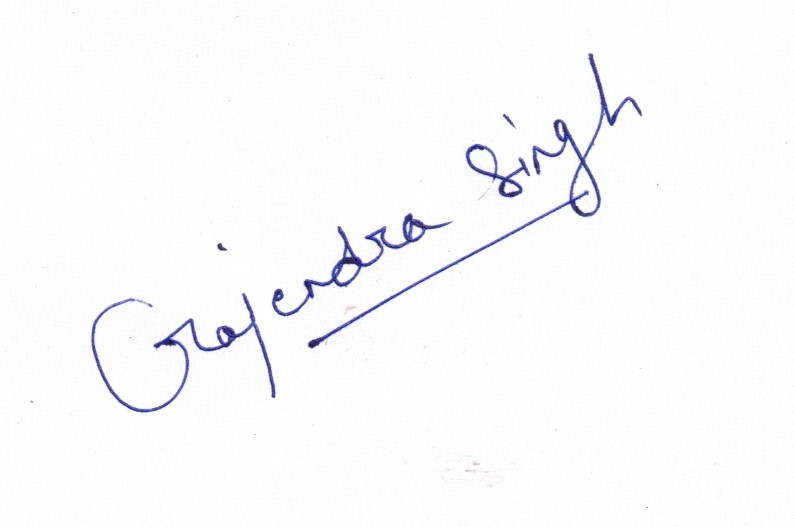 Gajendra Singh